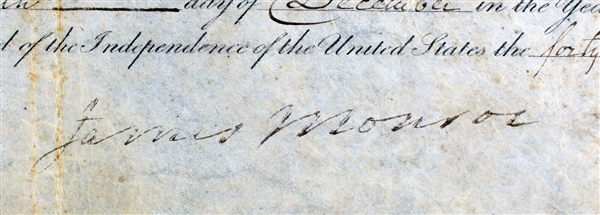 day of December in the Yea
of the Independence of the United States the forty
James Monroe